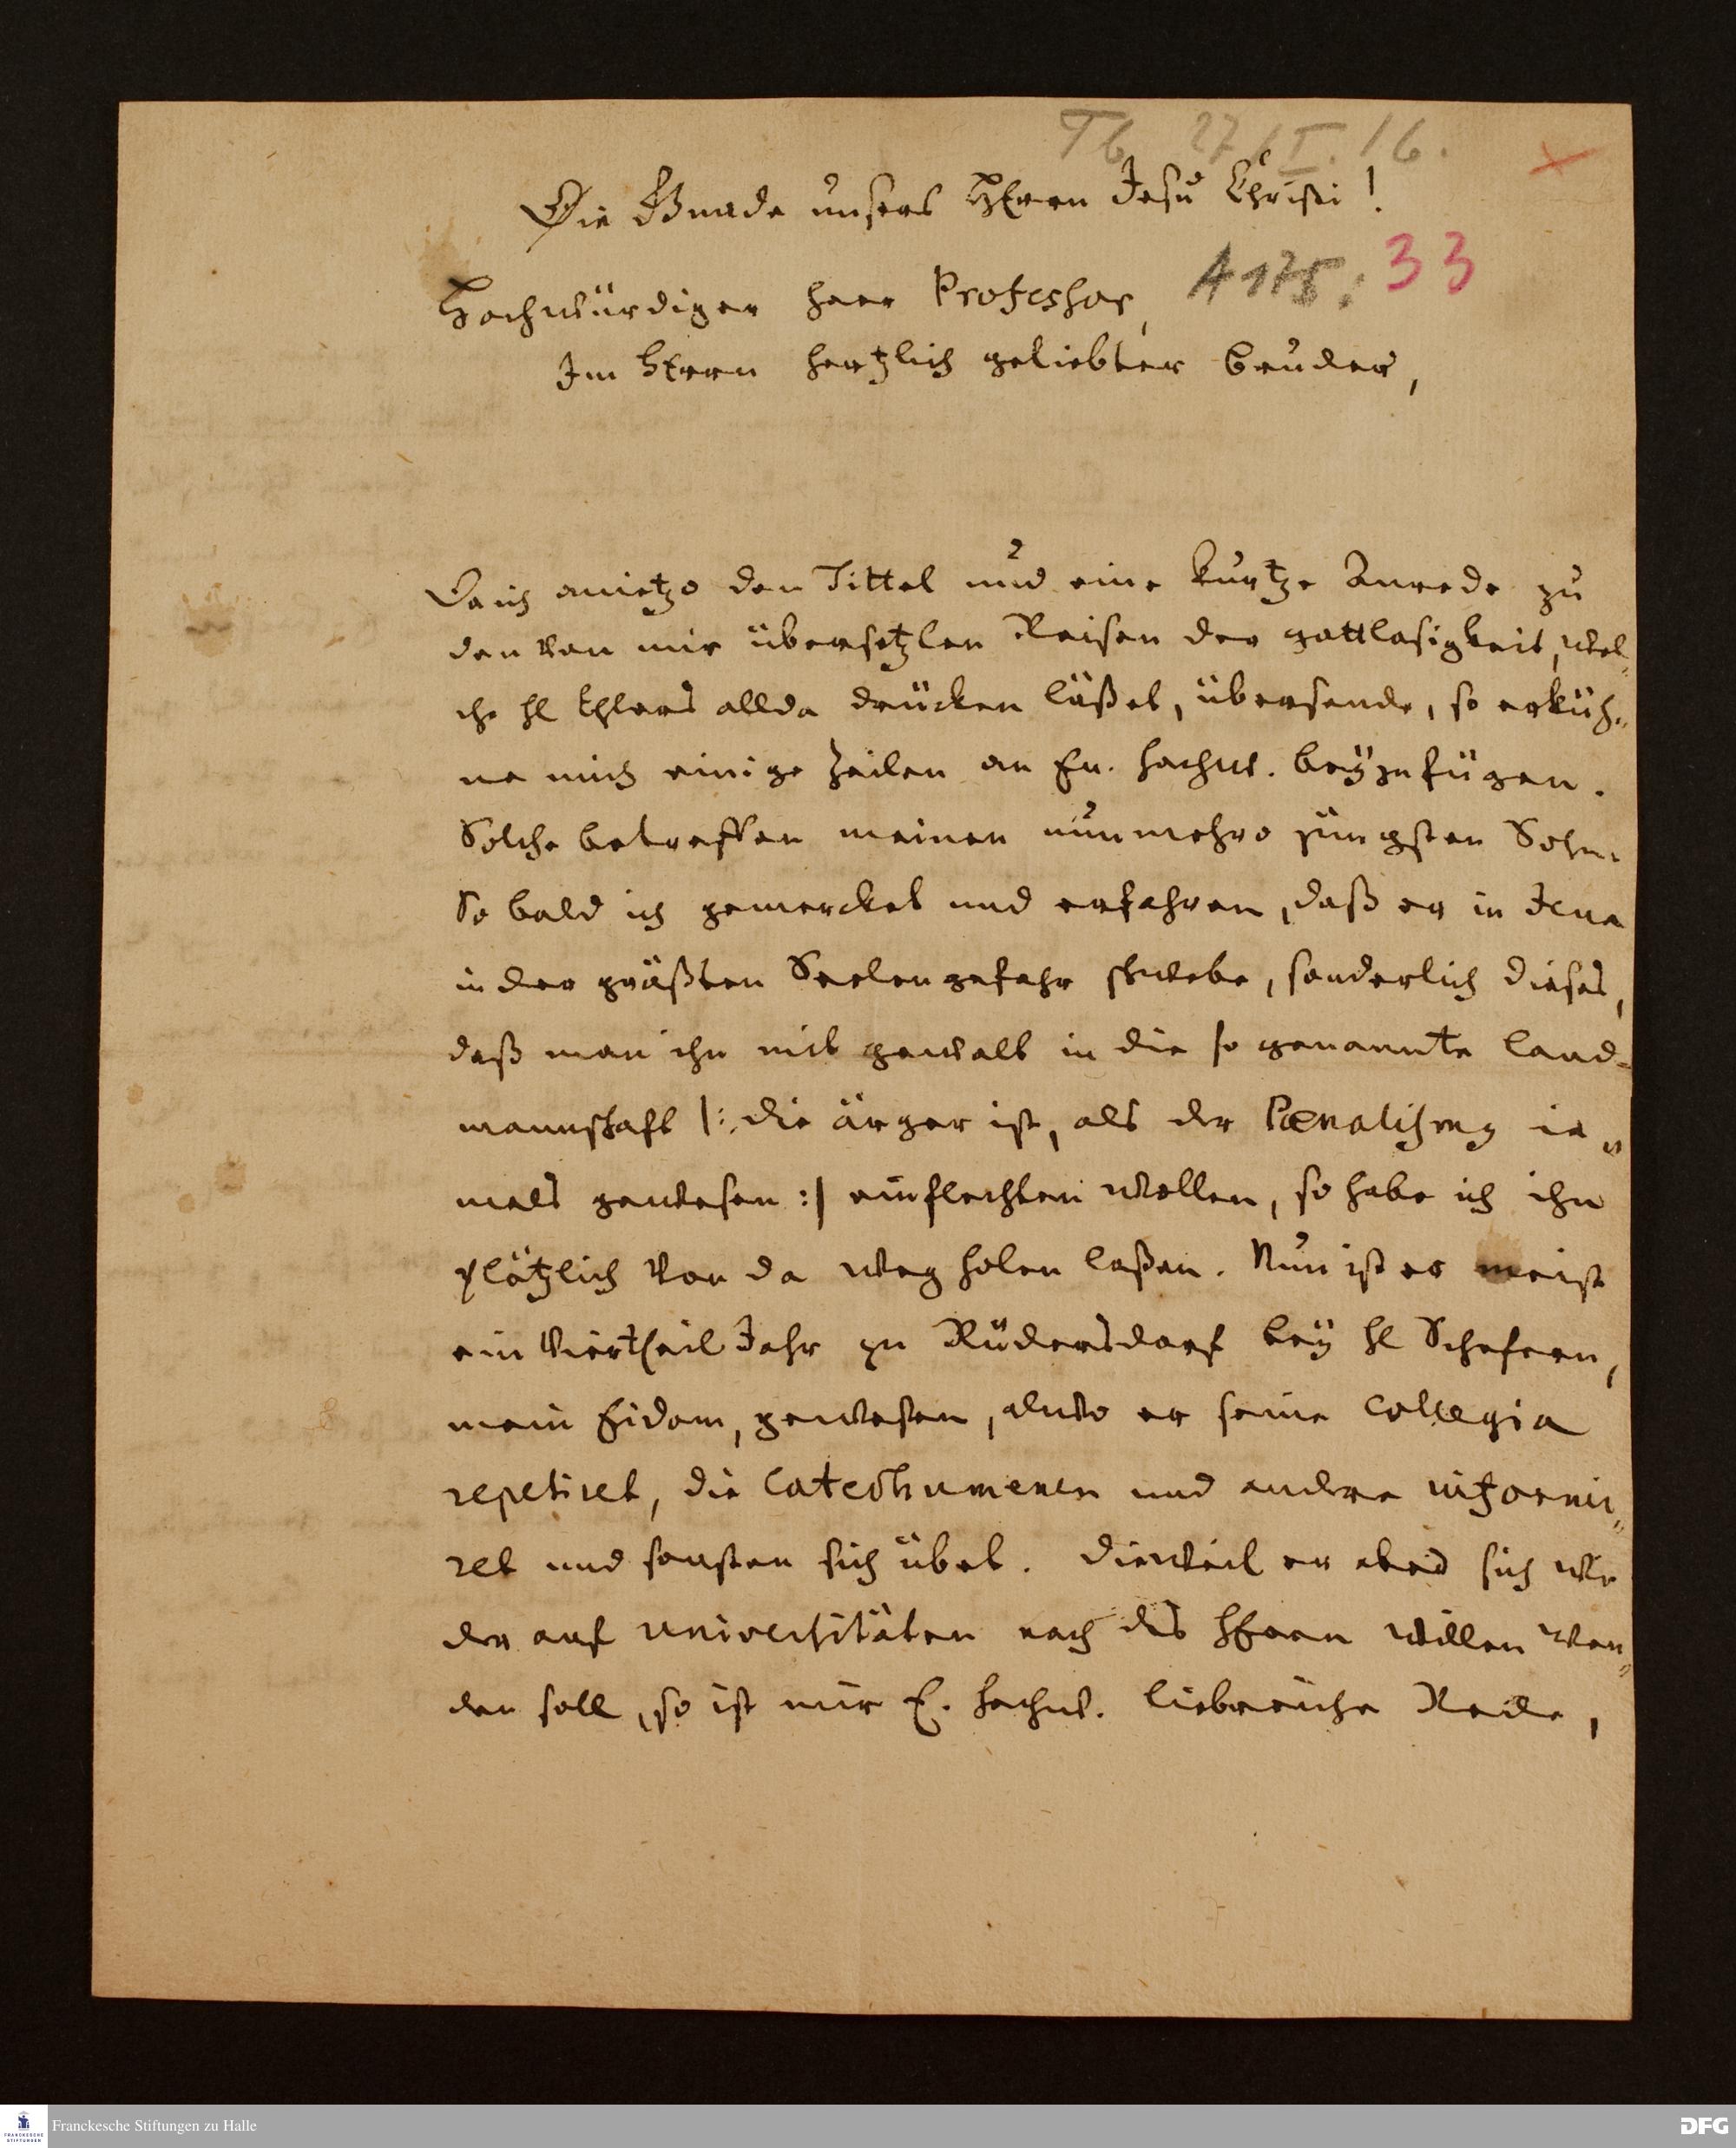 Tb 27/I.16.
Die Gnade unsers HErrn Jesu Christi!
A 175: 33
Hochwürdiger Herr Professor,
Im HErrn hertzlich geliebter Bruder,
Da ich anietzo den Tittel und eine kurtze Anrede zu
den von mir übersetzten Reisen der gottlosigkeit, wel-
che hl Ehlers allda drücken läßet, übersende, so erküh-
ne mich einige Zeilen an Ew. Hochw. beyzufügen.
Solche betreffen meinen nunmehro jüngsten Sohn.
So bald ich gemercket und erfahren, daß er in Jena
in der größten Seelengefahr schwebe, sonderlich dieses,
daß man ihn mit gewalt in die so genannte Land-
mannschaft |: die ärger ist, als der Pœnalismg ie-
mals gewesen :| einflechten wollen, so habe ich ihn
plötzlich von da weg holen laßen. Nun ist er meist
ein Viertheil Jahr zu Rüdersdorf bey hl Schefern,
mein Eidam, gewesen, alwo er seine Collegia
repetiret, die Catechumenen und andere informi-
ret und sonsten sich übet. Dieweil er aber sich wie
der auf Universitäten nach des HErrn willen wen-
den soll, so ist mir E. Hochw. liebreiche Rede,
Franckesche Stiftungen zu Halle
FRANCKESCHE
STIFTUNGEN
DFG